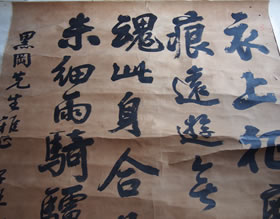 衣上
痕遠遊無
魂此身合
未細雨騎驢
黒岡先生雅正